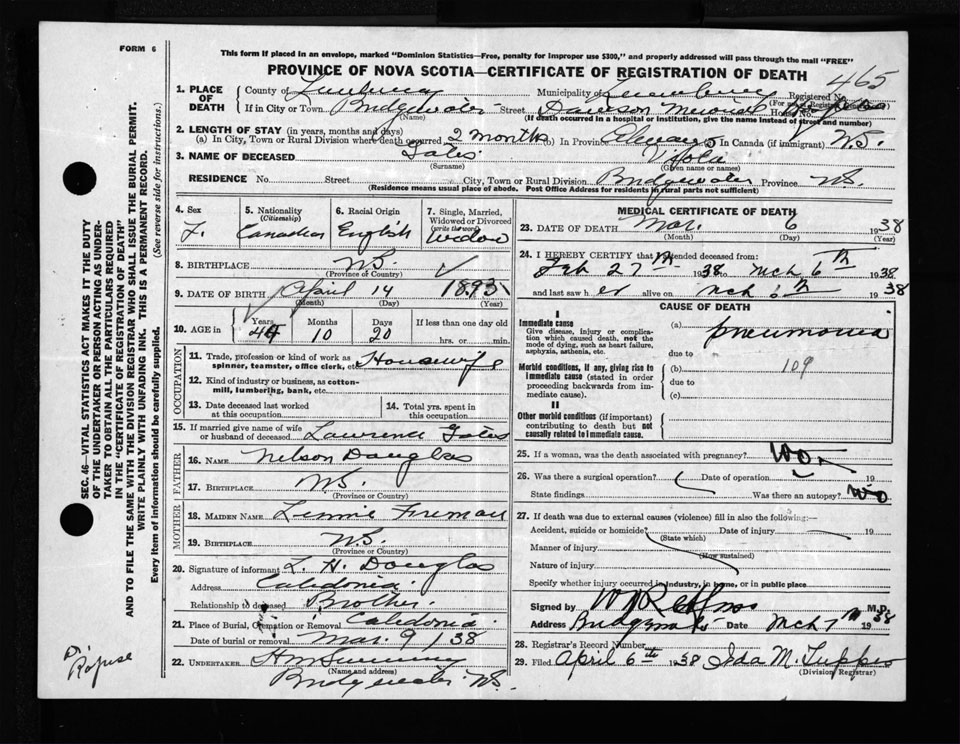 FORM 6
This form if placed in an envelope, marked "Dominion Statistics—Free, penalty for improper use $300," and properly addressed will pass through the mail "FREE"
PROVINCE OF NOVA SCOTIA—CERTIFICATE OF REGISTRATION OF DEATH
465
1. PLACE OF DEATH
County of Lunenburg Municipality of Lunenburg Registered No.
If in City or Town Bridgewater Street Dawson Memorial Hospital House No.
(Name) (If death occurred in a hospital or institution, give the name instead of street and number)
2. LENGTH OF STAY (in years, months and days)
(a) In City, Town or Rural Division where death occurred 2 months (b) In Province Always (c) In Canada (if immigrant) N.S.
3. NAME OF DECEASED Viola
(Surname) (Given name or names)
RESIDENCE No. Street City, Town or Rural Division Bridgewater Province N.S.
(Residence means usual place of abode. Post Office Address for residents in rural parts not sufficient)
4. Sex F.
5. Nationality (Citizenship) Canadian
6. Racial Origin English
7. Single, Married, Widowed or Divorced (write the word) Widow
8. BIRTHPLACE N.S.
(Province or Country)
9. DATE OF BIRTH April 14 1893
(Month) (Day) (Year)
10. AGE in Years 44 Months 10 Days 20 If less than one day old hrs. or min.
OCCUPATION
11. Trade, profession or kind of work as spinner, teamster, office clerk, etc. Housewife
12. Kind of industry or business, as cotton-mill, lumbering, bank, etc.
13. Date deceased last worked at this occupation
14. Total yrs. spent in this occupation
15. If married give name of wife or husband of deceased Lawrence
FATHER
16. Name Nelson Douglas
17. Birthplace N.S.
(Province or Country)
MOTHER
18. Maiden Name Lennie Freeman
19. Birthplace N.S.
(Province or Country)
20. Signature of informant L. H. Douglas
Address Caledonia
Relationship to deceased Brother
21. Place of Burial, Cremation or Removal Caledonia
Date of burial or removal Mar. 9 / 38
22. UNDERTAKER
(Name and address)
Bridgewater N.S.
MEDICAL CERTIFICATE OF DEATH
23. DATE OF DEATH Mar. 6 1938
(Month) (Day) (Year)
24. I HEREBY CERTIFY that I attended deceased from:
Feb 27th 1938 to Mch 6th 1938
and last saw her alive on Mch 6th 1938
CAUSE OF DEATH
I
Immediate cause
Give disease, injury or complication which caused death, not the mode of dying, such as heart failure, asphyxia, asthenia, etc.
(a) pneumonia
due to
Morbid conditions, if any, giving rise to immediate cause (stated in order proceeding backwards from immediate cause).
(b) 109
due to
(c)
II
Other morbid conditions (if important) contributing to death but not causally related to immediate cause.
25. If a woman, was the death associated with pregnancy? No
26. Was there a surgical operation? Date of operation 19
State findings Was there an autopsy? No
27. If death was due to external causes (violence) fill in also the following:—
Accident, suicide or homicide? Date of injury 19
(State which)
Manner of injury
(How sustained)
Nature of injury
Specify whether injury occurred in industry, in home, or in public place
Signed by M.D.
Address Bridgewater Date Mch 7th 1938
28. Registrar's Record Number
29. Filed April 6th 1938 Ida M. Tupper
(Division Registrar)
SEC. 46—VITAL STATISTICS ACT MAKES IT THE DUTY
OF THE UNDERTAKER OR PERSON ACTING AS UNDER-
TAKER TO OBTAIN ALL THE PARTICULARS REQUIRED
IN THE "CERTIFICATE OF REGISTRATION OF DEATH"
AND TO FILE THE SAME WITH THE DIVISION REGISTRAR WHO SHALL ISSUE THE BURIAL PERMIT.
WRITE PLAINLY WITH UNFADING INK. THIS IS A PERMANENT RECORD.
Every item of information should be carefully supplied. (See reverse side for instructions.)
Dr. Rafuse